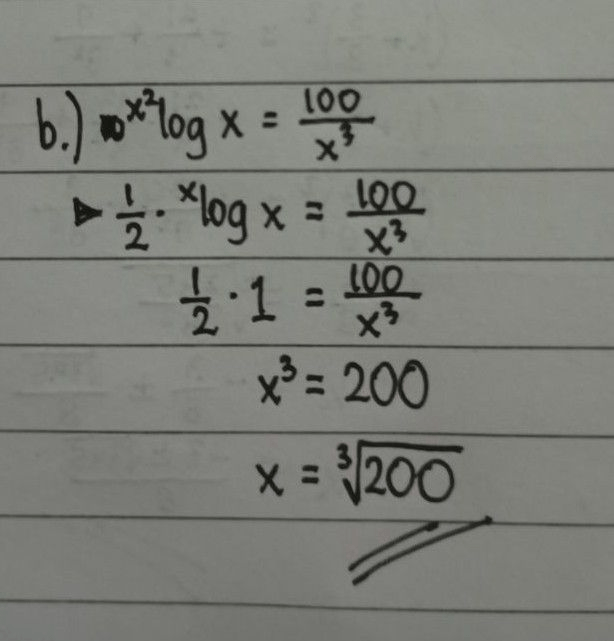 b.) ˣ²log x = 100/x³
▶ 1/2 · ˣlog x = 100/x³
1/2 · 1 = 100/x³
x³ = 200
x = ³√200